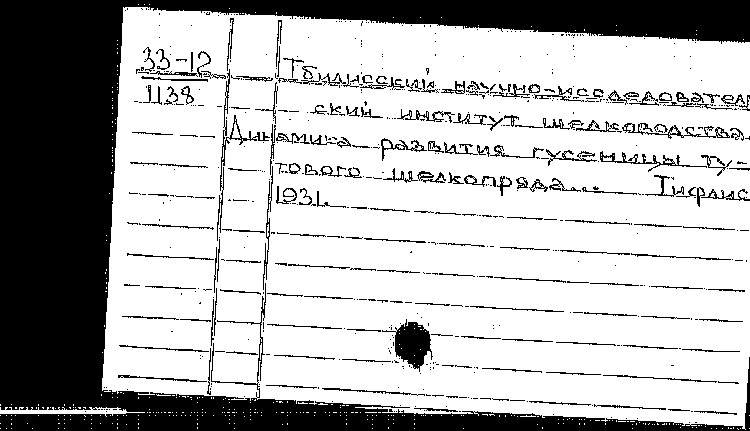 33-12
1138
Тбилисский научно-исследовател
ский институт шелководства.
Динамика развития гусеницы ту-
тового шелкопряда... Тифлис
1931.